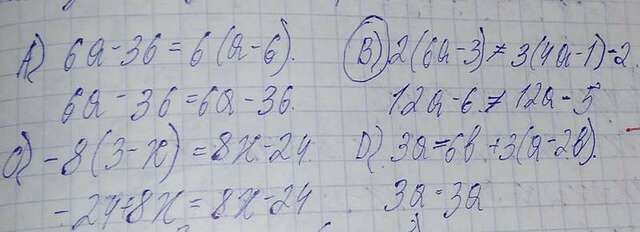 A) 6a-36=6(a-6).
6a-36=6a-36.
B) 2(6a-3)≠3(4a-1)-2
12a-6≠12a-5
C) -8(3-x)=8x-24
-24+8x=8x-24
D) 3a=6b+3(a-2b).
3a=3a